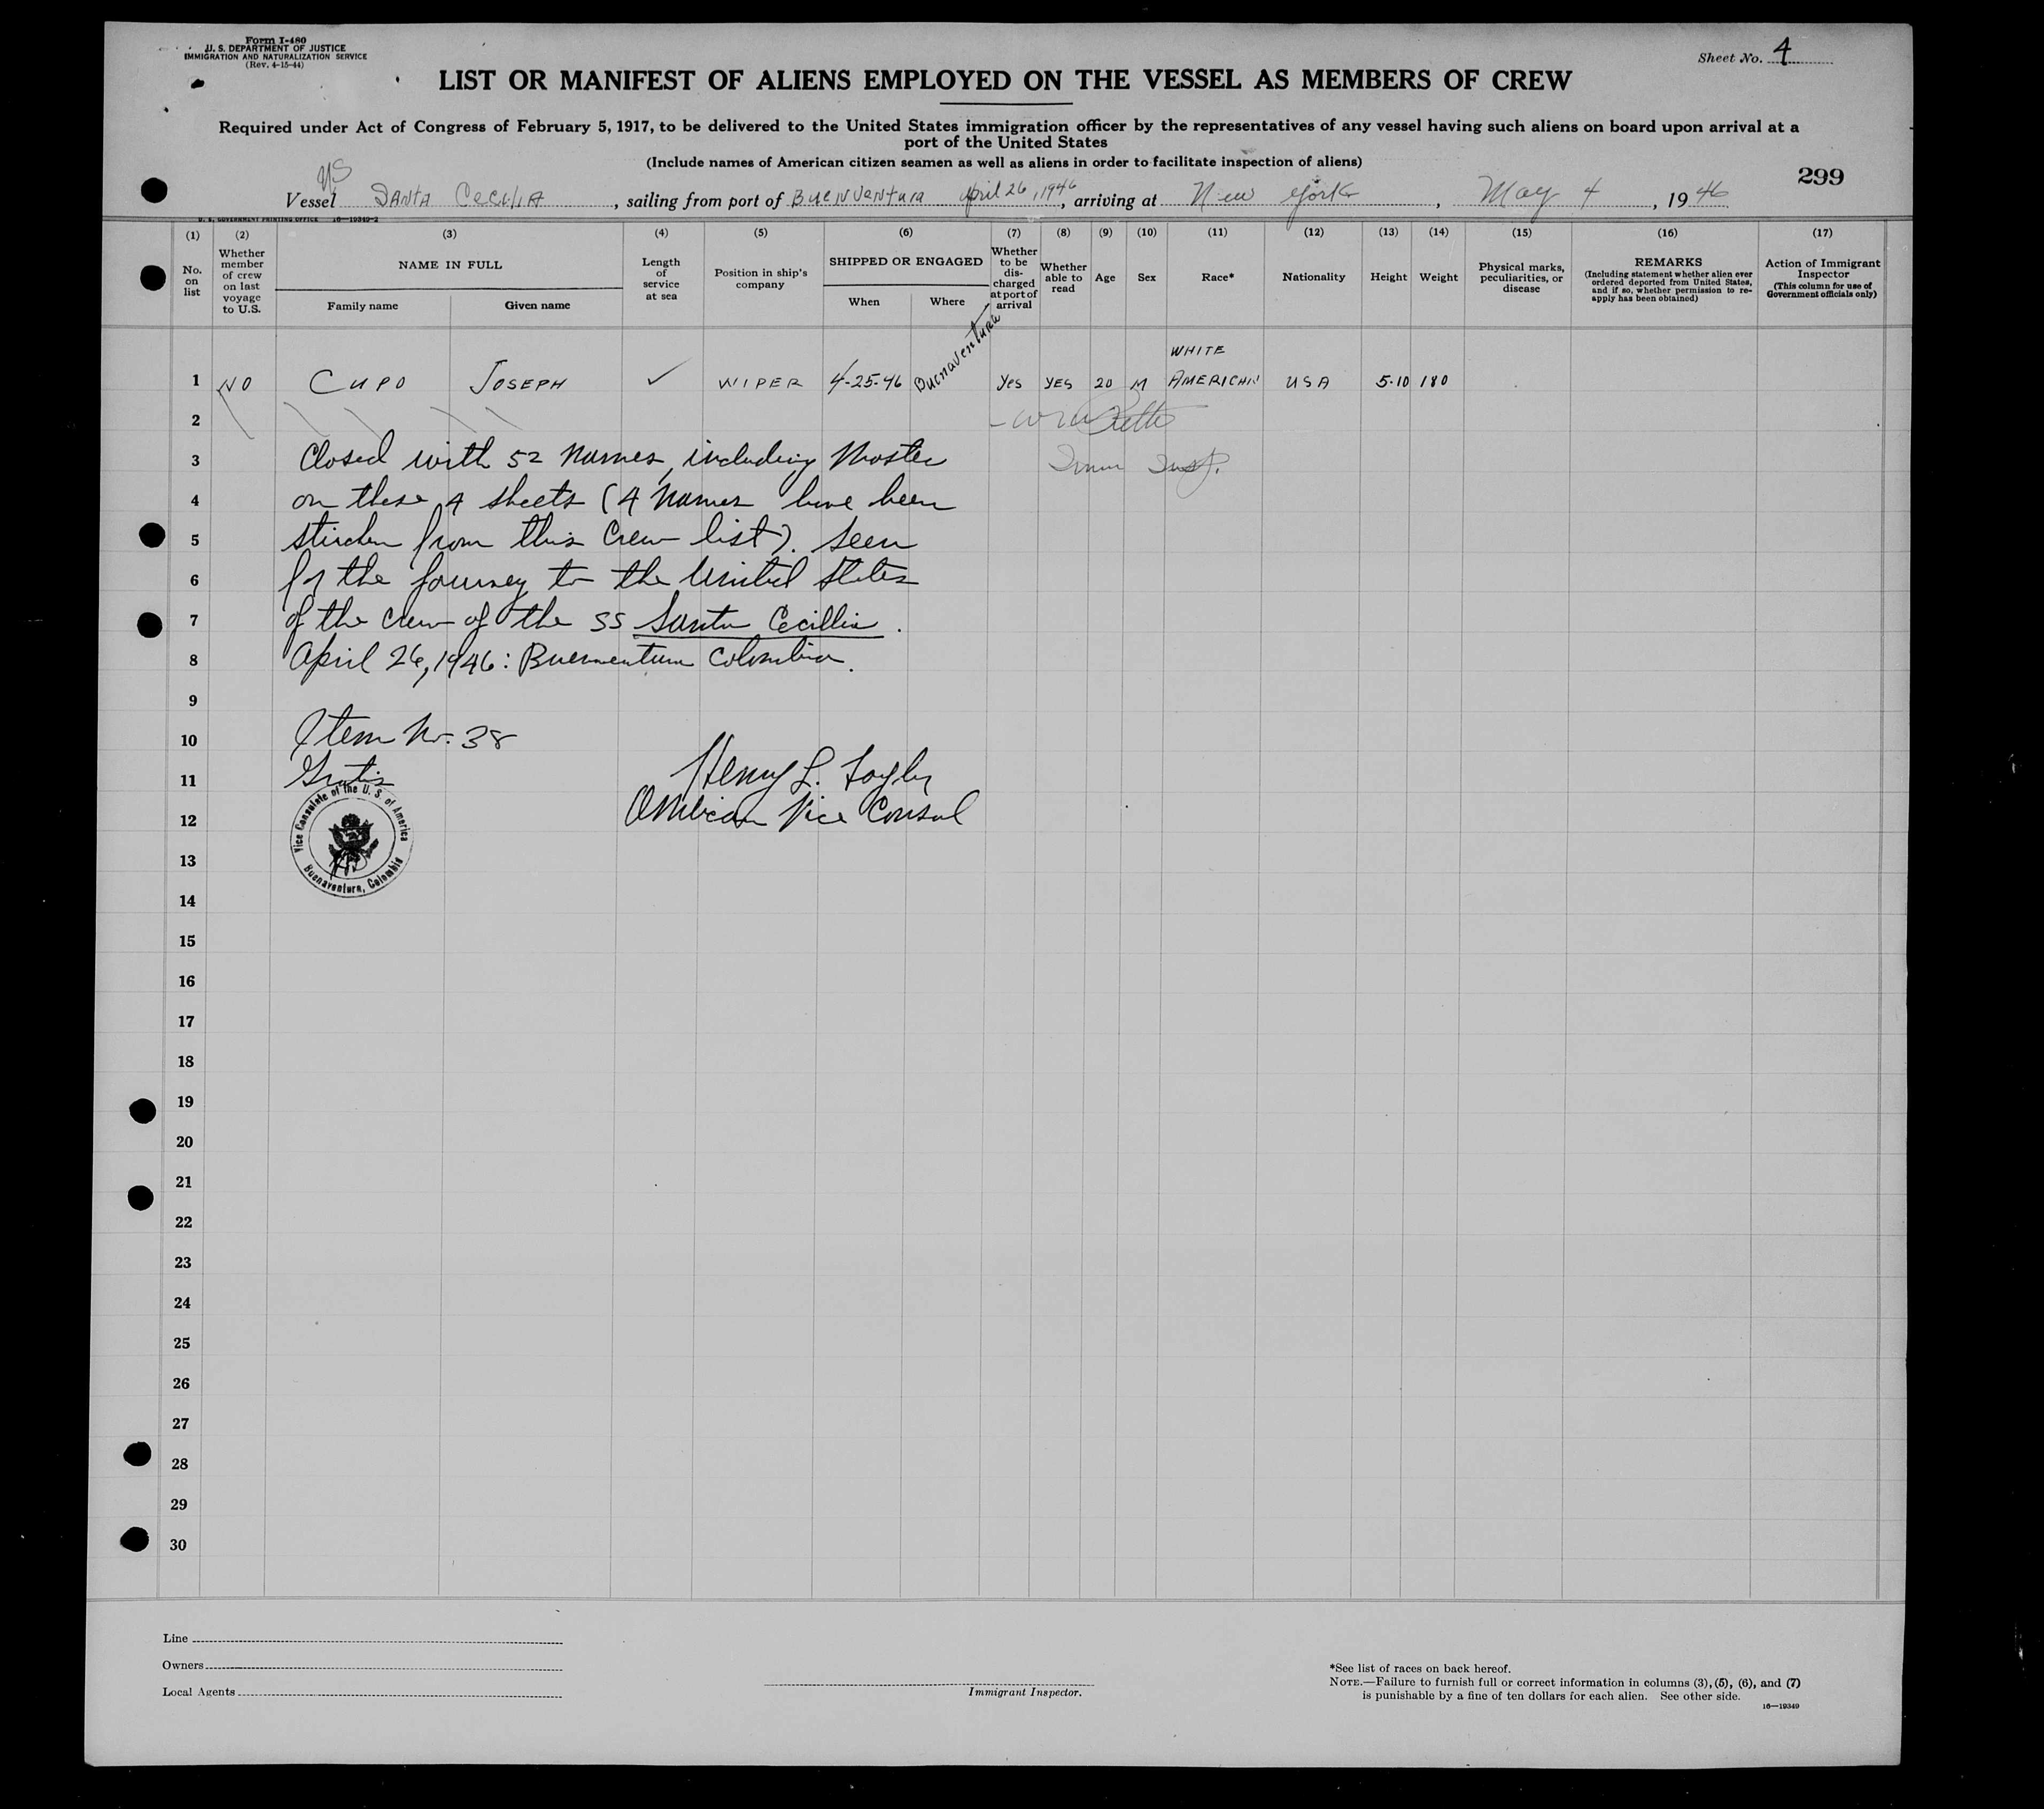 Form I-480
U. S. DEPARTMENT OF JUSTICE
IMMIGRATION AND NATURALIZATION SERVICE
(Rev. 4-15-44)
Sheet No. 4
LIST OR MANIFEST OF ALIENS EMPLOYED ON THE VESSEL AS MEMBERS OF CREW
Required under Act of Congress of February 5, 1917, to be delivered to the United States immigration officer by the representatives of any vessel having such aliens on board upon arrival at a
port of the United States
(Include names of American citizen seamen as well as aliens in order to facilitate inspection of aliens)
299
Vessel SANTA CECILIA, sailing from port of Buenventura April 26, 1946, arriving at New York, May 4, 1946
U. S. GOVERNMENT PRINTING OFFICE 16—19349-2
(1) (2) (3) (4) (5) (6) (7) (8) (9) (10) (11) (12) (13) (14) (15) (16) (17)
No. on list
Whether member of crew on last voyage to U.S.
NAME IN FULL
Family name Given name
Length of service at sea
Position in ship's company
SHIPPED OR ENGAGED
When Where
Whether to be discharged at port of arrival
Whether able to read
Age
Sex
Race*
Nationality
Height
Weight
Physical marks, peculiarities, or disease
REMARKS
(Including statement whether alien ever ordered deported from United States, and if so, whether permission to reapply has been obtained)
Action of Immigrant Inspector
(This column for use of Government officials only)
1 NO CUPO JOSEPH ✓ WIPER 4-25-46 Buenaventura Yes YES 20 M WHITE AMERICAN USA 5-10 180
2
3 Closed with 52 names, including Master
Imm Insp.
4 on these 4 sheets (4 names have been
5 stricken from this crew list). Seen
6 for the journey to the United States
7 of the crew of the SS Santa Cecillia.
8 April 26, 1946: Buenaventura Colombia.
9
10 Item No. 38
11 Gratis
Henry L.
12 American Vice Consul
Vice Consulate of the U. S. of America
Buenaventura, Colombia
13
14
15
16
17
18
19
20
21
22
23
24
25
26
27
28
29
30
Line
Owners
Local Agents
Immigrant Inspector.
*See list of races on back hereof.
NOTE.—Failure to furnish full or correct information in columns (3), (5), (6), and (7)
is punishable by a fine of ten dollars for each alien. See other side.
16—19349